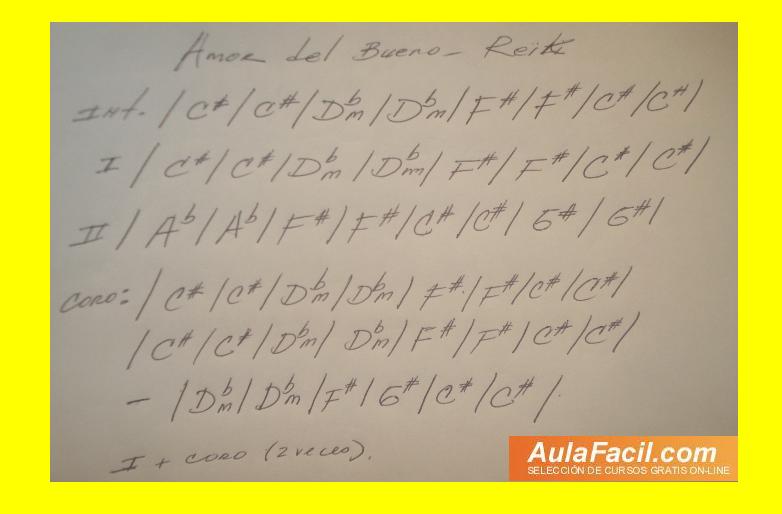 Amor del Bueno - Reïki
Int. / C# / C# / Dbm / Dbm / F# / F# / C# / C# /
I / C# / C# / Dbm / Dbm / F# / F# / C# / C# /
II / Ab / Ab / F# / F# / C# / C# / G# / G# /
CORO: / C# / C# / Dbm / Dbm / F# / F# / C# / C# /
/ C# / C# / Dbm / Dbm / F# / F# / C# / C# /
- / Dbm / Dbm / F# / G# / C# / C# / .
I + CORO (2 veces).
AulaFacil.com
SELECCIÓN DE CURSOS GRATIS ON-LINE